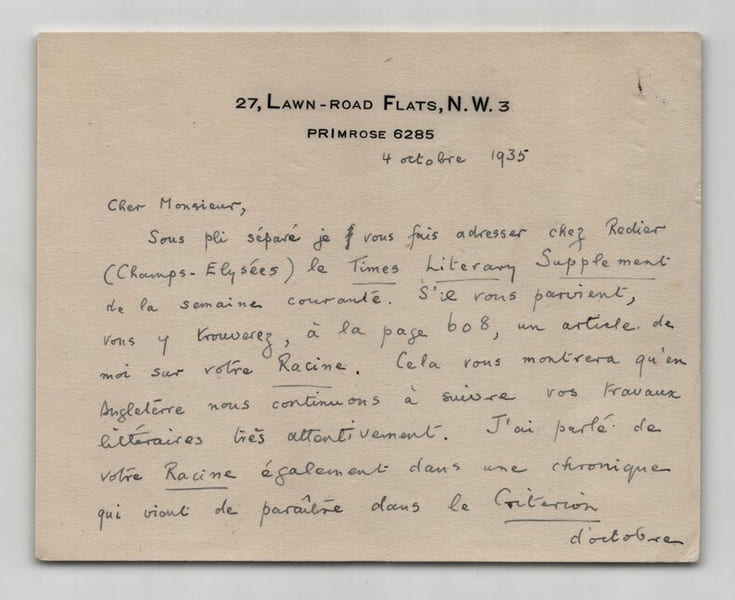 27, LAWN-ROAD FLATS, N.W. 3
PRIMROSE 6285
4 octobre 1935
Cher Monsieur,
Sous pli séparé je vous fais adresser chez Redier
(Champs-Elysées) le Times Literary Supplement
de la semaine courante. S'il vous parvient,
vous y trouverez, à la page 608, un article de
moi sur votre Racine. Cela vous montrera qu'en
Angleterre nous continuons à suivre vos travaux
littéraires très attentivement. J'ai parlé de
votre Racine également dans une chronique
qui vient de paraître dans le Criterion
d'octobre